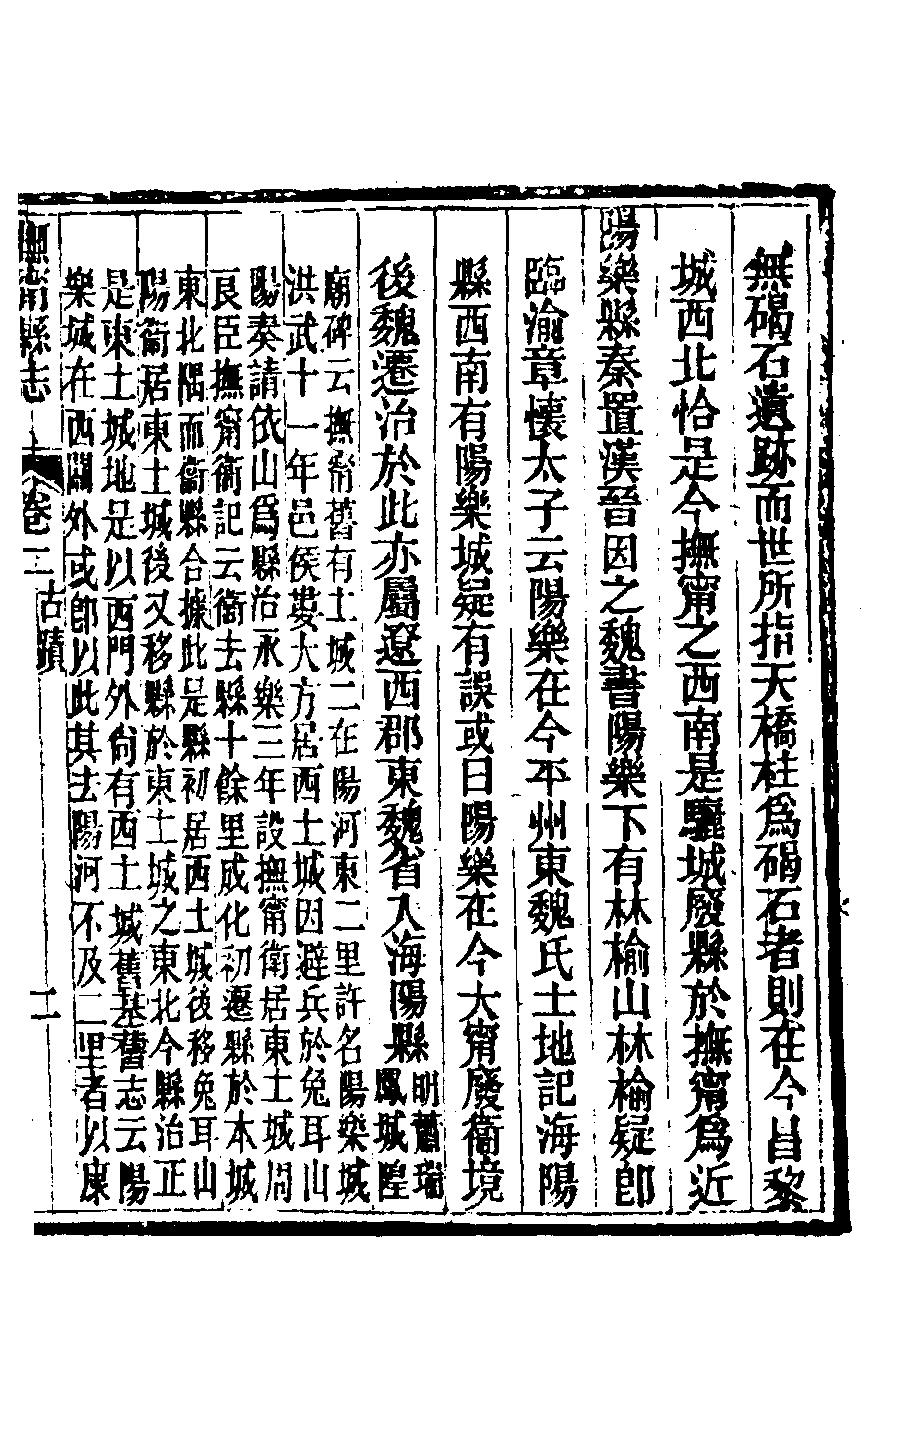 無碣石遺跡而世所指天橋柱爲碣石者則在今昌黎
城西北恰是今撫甯之西南是驪城廢縣於撫甯爲近
陽樂縣秦置漢晉因之魏書陽樂下有林榆山林榆疑卽
臨渝章懷太子云陽樂在今平州東魏氏土地記海陽
縣西南有陽樂城疑有誤或曰陽樂在今大甯廢衞境
後魏遷治於此亦屬遼西郡東魏省入海陽縣
明蕭瑞
鳳城隍
廟碑云撫甯舊有土城二在陽河東二里許名陽樂城
洪武十一年邑侯婁大方居西土城因避兵於兔耳山
陽奏請依山爲縣治永樂三年設撫甯衞居東土城周
良臣撫甯衞記云衞去縣十餘里成化初遷縣於本城
東北隅而衞縣合據此是縣初居西土城後移兔耳山
陽衞居東土城後又移縣於東土城之東北今縣治正
是東土城地是以西門外尙有西土城舊基舊志云陽
樂城在西關外或卽以此其去陽河不及二里者以康
撫甯縣志
卷二
古蹟
二